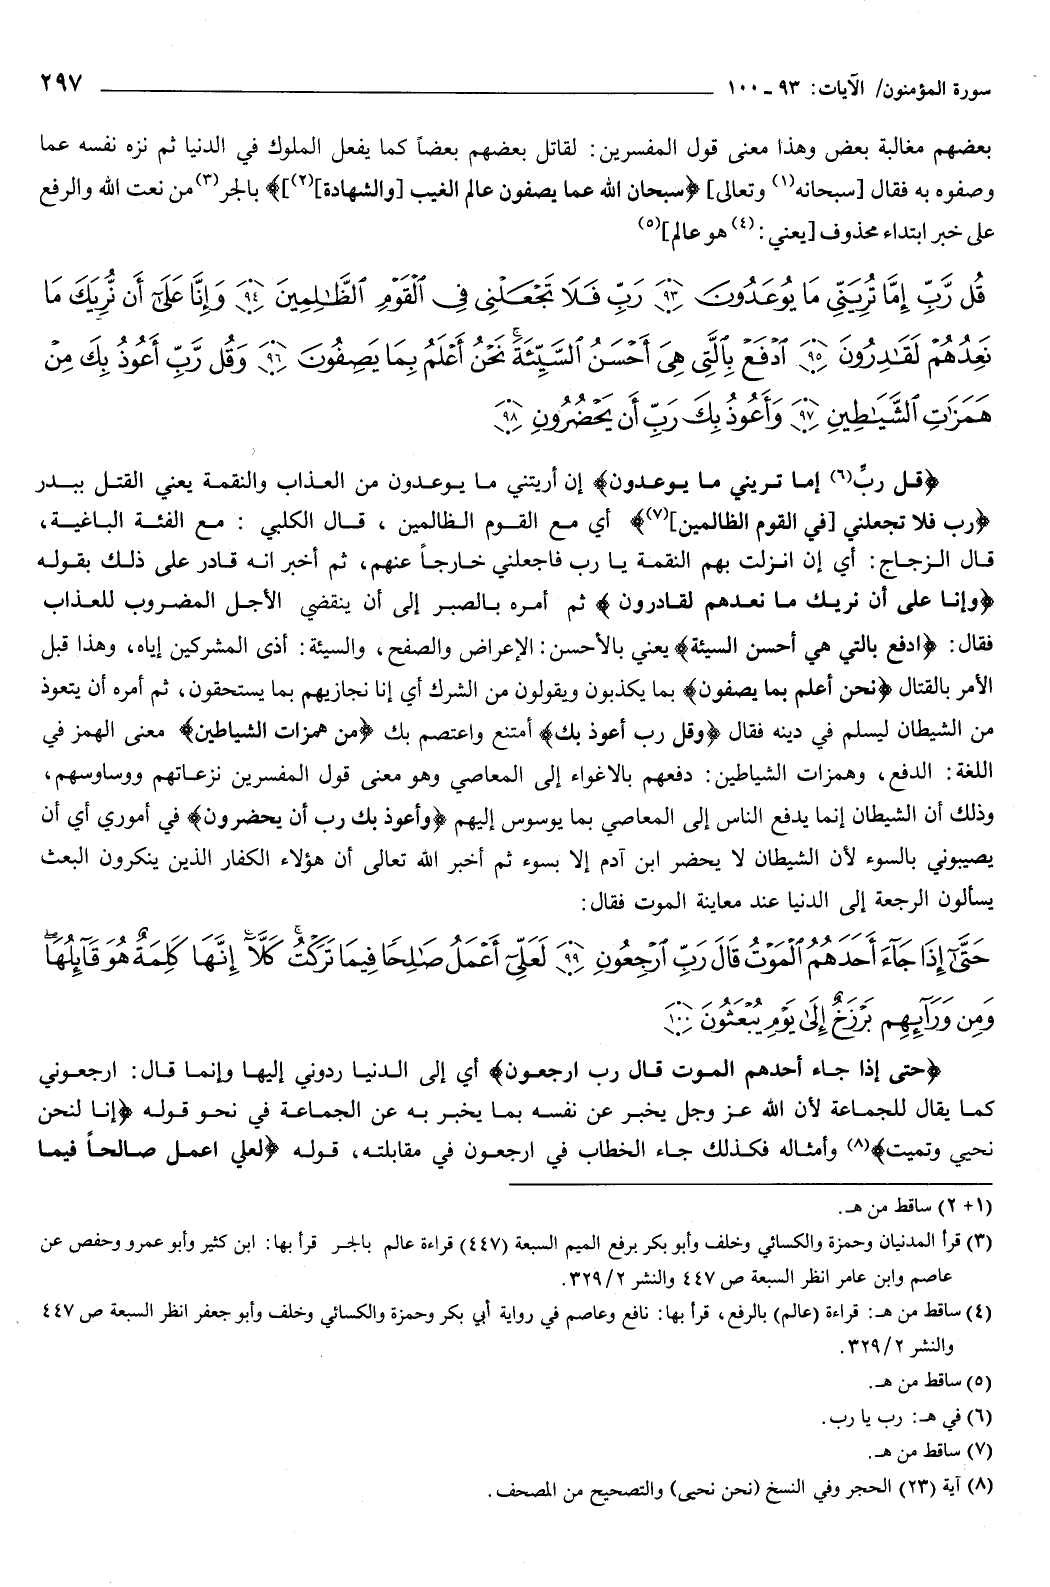 سورة المؤمنون/ الآيات: ٩٣ ـ ١٠٠ ٢٩٧
بعضهم مغالبة بعض وهذا معنى قول المفسرين: لقاتل بعضهم بعضاً كما يفعل الملوك في الدنيا ثم نزه نفسه عما
وصفوه به فقال [سبحانه(١) وتعالى] ﴿سبحان الله عما يصفون عالم الغيب [والشهادة](٢)]﴾ بالجر(٣) من نعت الله والرفع
على خبر ابتداء محذوف [يعني:(٤) هو عالم](٥)
قُل رَّبِّ إِمَّا تُرِيَنِّي مَا يُوعَدُونَ ﴿٩٣﴾ رَبِّ فَلَا تَجْعَلْنِي فِي ٱلْقَوْمِ ٱلظَّٰلِمِينَ ﴿٩٤﴾ وَإِنَّا عَلَىٰٓ أَن نُّرِيَكَ مَا
نَعِدُهُمْ لَقَٰدِرُونَ ﴿٩٥﴾ ٱدْفَعْ بِٱلَّتِي هِيَ أَحْسَنُ ٱلسَّيِّئَةَ ۚ نَحْنُ أَعْلَمُ بِمَا يَصِفُونَ ﴿٩٦﴾ وَقُل رَّبِّ أَعُوذُ بِكَ مِنْ
هَمَزَٰتِ ٱلشَّيَٰطِينِ ﴿٩٧﴾ وَأَعُوذُ بِكَ رَبِّ أَن يَحْضُرُونِ ﴿٩٨﴾
﴿قل ربِّ(٦) إما تريني ما يوعدون﴾ إن أريتني ما يوعدون من العذاب والنقمة يعني القتل ببدر
﴿رب فلا تجعلني [في القوم الظالمين](٧)﴾ أي مع القوم الظالمين ، قال الكلبي : مع الفئة الباغية،
قال الزجاج: أي إن انزلت بهم النقمة يا رب فاجعلني خارجاً عنهم، ثم أخبر انه قادر على ذلك بقوله
﴿وإنا على أن نريك ما نعدهم لقادرون ﴾ ثم أمره بالصبر إلى أن ينقضي الأجل المضروب للعذاب
فقال: ﴿ادفع بالتي هي أحسن السيئة﴾ يعني بالأحسن: الإعراض والصفح، والسيئة: أذى المشركين إياه، وهذا قبل
الأمر بالقتال ﴿نحن أعلم بما يصفون﴾ بما يكذبون ويقولون من الشرك أي إنا نجازيهم بما يستحقون، ثم أمره أن يتعوذ
من الشيطان ليسلم في دينه فقال ﴿وقل رب أعوذ بك﴾ أمتنع واعتصم بك ﴿من همزات الشياطين﴾ معنى الهمز في
اللغة: الدفع، وهمزات الشياطين: دفعهم بالاغواء إلى المعاصي وهو معنى قول المفسرين نزعاتهم ووساوسهم،
وذلك أن الشيطان إنما يدفع الناس إلى المعاصي بما يوسوس إليهم ﴿وأعوذ بك رب أن يحضرون﴾ في أموري أي أن
يصيبوني بالسوء لأن الشيطان لا يحضر ابن آدم إلا بسوء ثم أخبر الله تعالى أن هؤلاء الكفار الذين ينكرون البعث
يسألون الرجعة إلى الدنيا عند معاينة الموت فقال:
حَتَّىٰٓ إِذَا جَآءَ أَحَدَهُمُ ٱلْمَوْتُ قَالَ رَبِّ ٱرْجِعُونِ ﴿٩٩﴾ لَعَلِّيٓ أَعْمَلُ صَٰلِحًا فِيمَا تَرَكْتُ ۚ كَلَّآ ۚ إِنَّهَا كَلِمَةٌ هُوَ قَآئِلُهَا ۖ
وَمِن وَرَآئِهِم بَرْزَخٌ إِلَىٰ يَوْمِ يُبْعَثُونَ ﴿١٠٠﴾
﴿حتى إذا جاء أحدهم الموت قال رب ارجعون﴾ أي إلى الدنيا ردوني إليها وإنما قال: ارجعوني
كما يقال للجماعة لأن الله عز وجل يخبر عن نفسه بما يخبر به عن الجماعة في نحو قوله ﴿إنا لنحن
نحيي وتميت﴾(٨) وأمثاله فكذلك جاء الخطاب في ارجعون في مقابلته، قوله ﴿لعلي اعمل صالحاً فيما
(١+ ٢) ساقط من هـ.
(٣) قرأ المدنيان وحمزة والكسائي وخلف وأبو بكر برفع الميم السبعة (٤٤٧) قراءة عالم بالجر قرأ بها: ابن كثير وأبو عمرو وحفص عن
عاصم وابن عامر انظر السبعة ص ٤٤٧ والنشر ٣٢٩/٢.
(٤) ساقط من هـ: قراءة (عالم) بالرفع، قرأ بها: نافع وعاصم في رواية أبي بكر وحمزة والكسائي وخلف وأبو جعفر انظر السبعة ص ٤٤٧
والنشر ٣٢٩/٢.
(٥) ساقط من هـ.
(٦) في هـ: رب يا رب.
(٧) ساقط من هـ.
(٨) آية (٢٣) الحجر وفي النسخ (نحن نحيى) والتصحيح من المصحف.